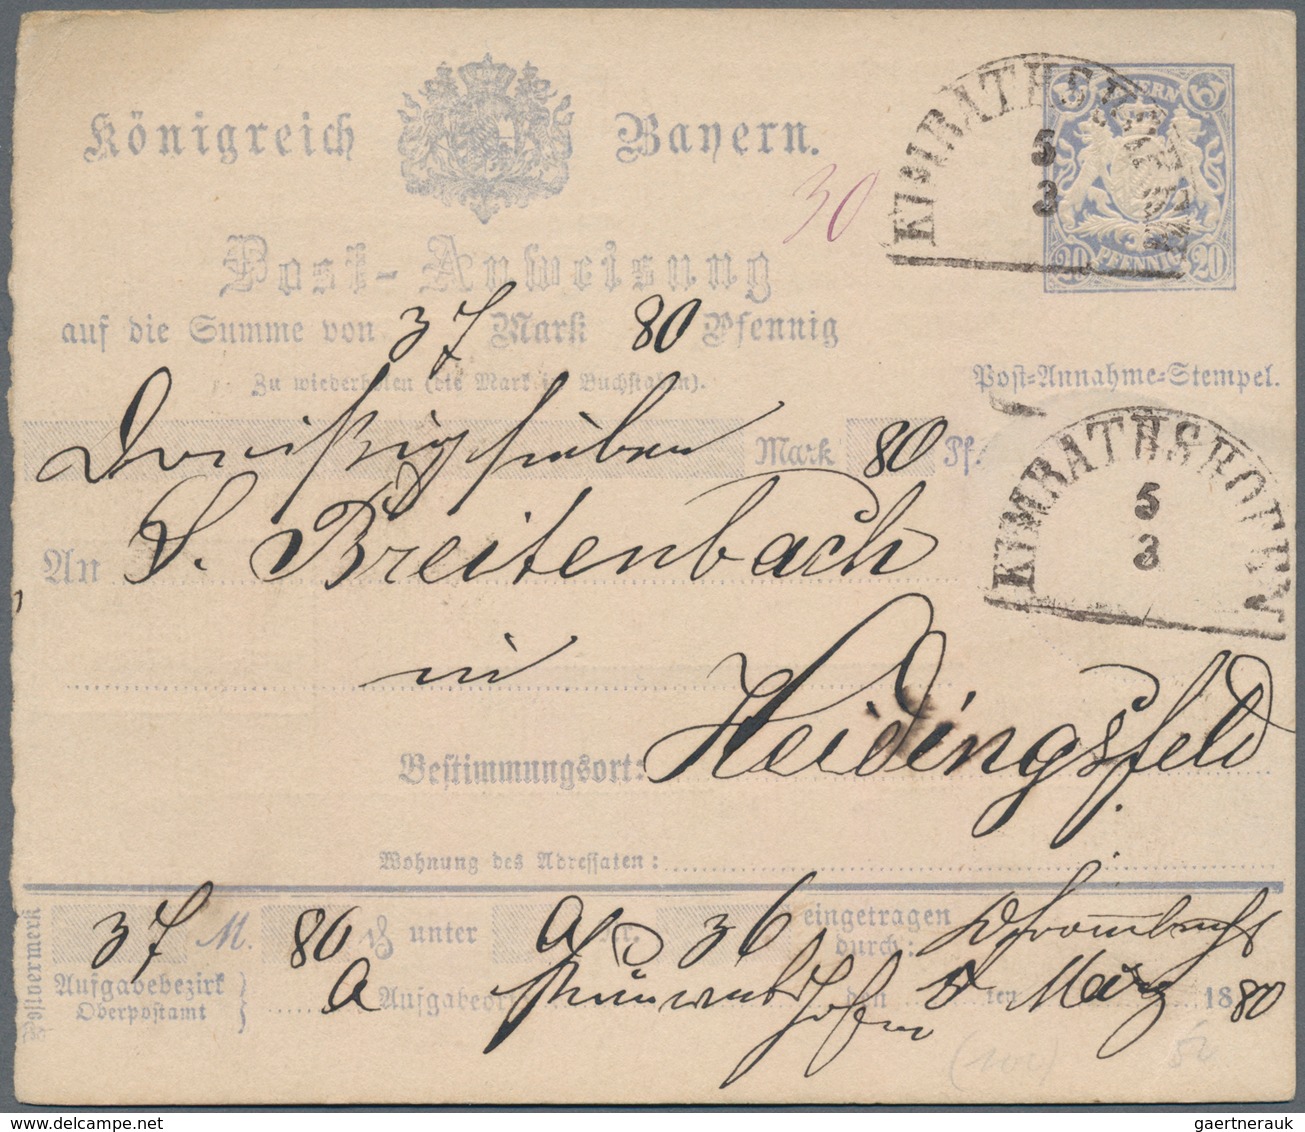 Königreich Bayern.
KIMRATHSHOFEN
5
3
BAYERN
20 PFENNIG 20
30
Post-Anweisung
auf die Summe von 37 Mark 80 Pfennig
Zu wiederholen (die Mark in Buchstaben).
Post-Annahme-Stempel.
Dreißigsieben Mark 80 Pf.
KIMRATHSHOFEN
5
3
An S. Breitenbach
in
Bestimmungsort: Heidingsfeld
Wohnung des Adressaten:
Postvermerk
37 M. 80 ₰ unter a Nr. 36 eingetragen
durch:
Aufgabebezirk
Oberpostamt
a Aufgabeort den 5 ten März 1880
(100)
gaertnerauk / delcampe.net